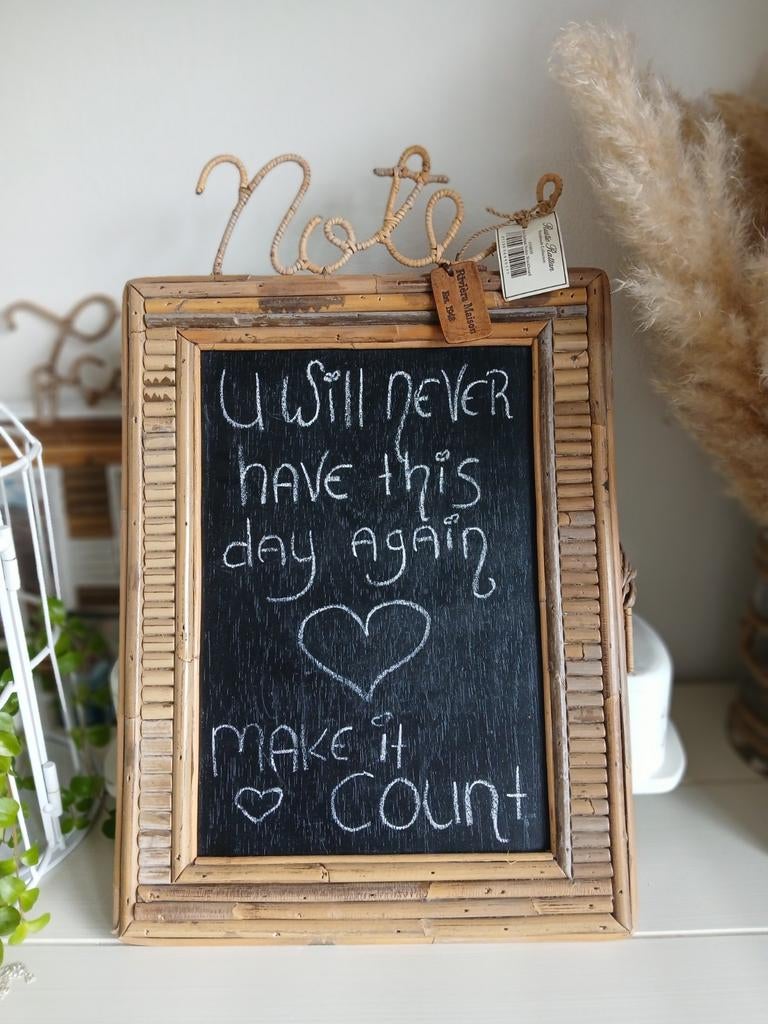 note
Rustic Rattan
Rivièra Maison
Est. 1948
U Will never
have this
day again
make it
count